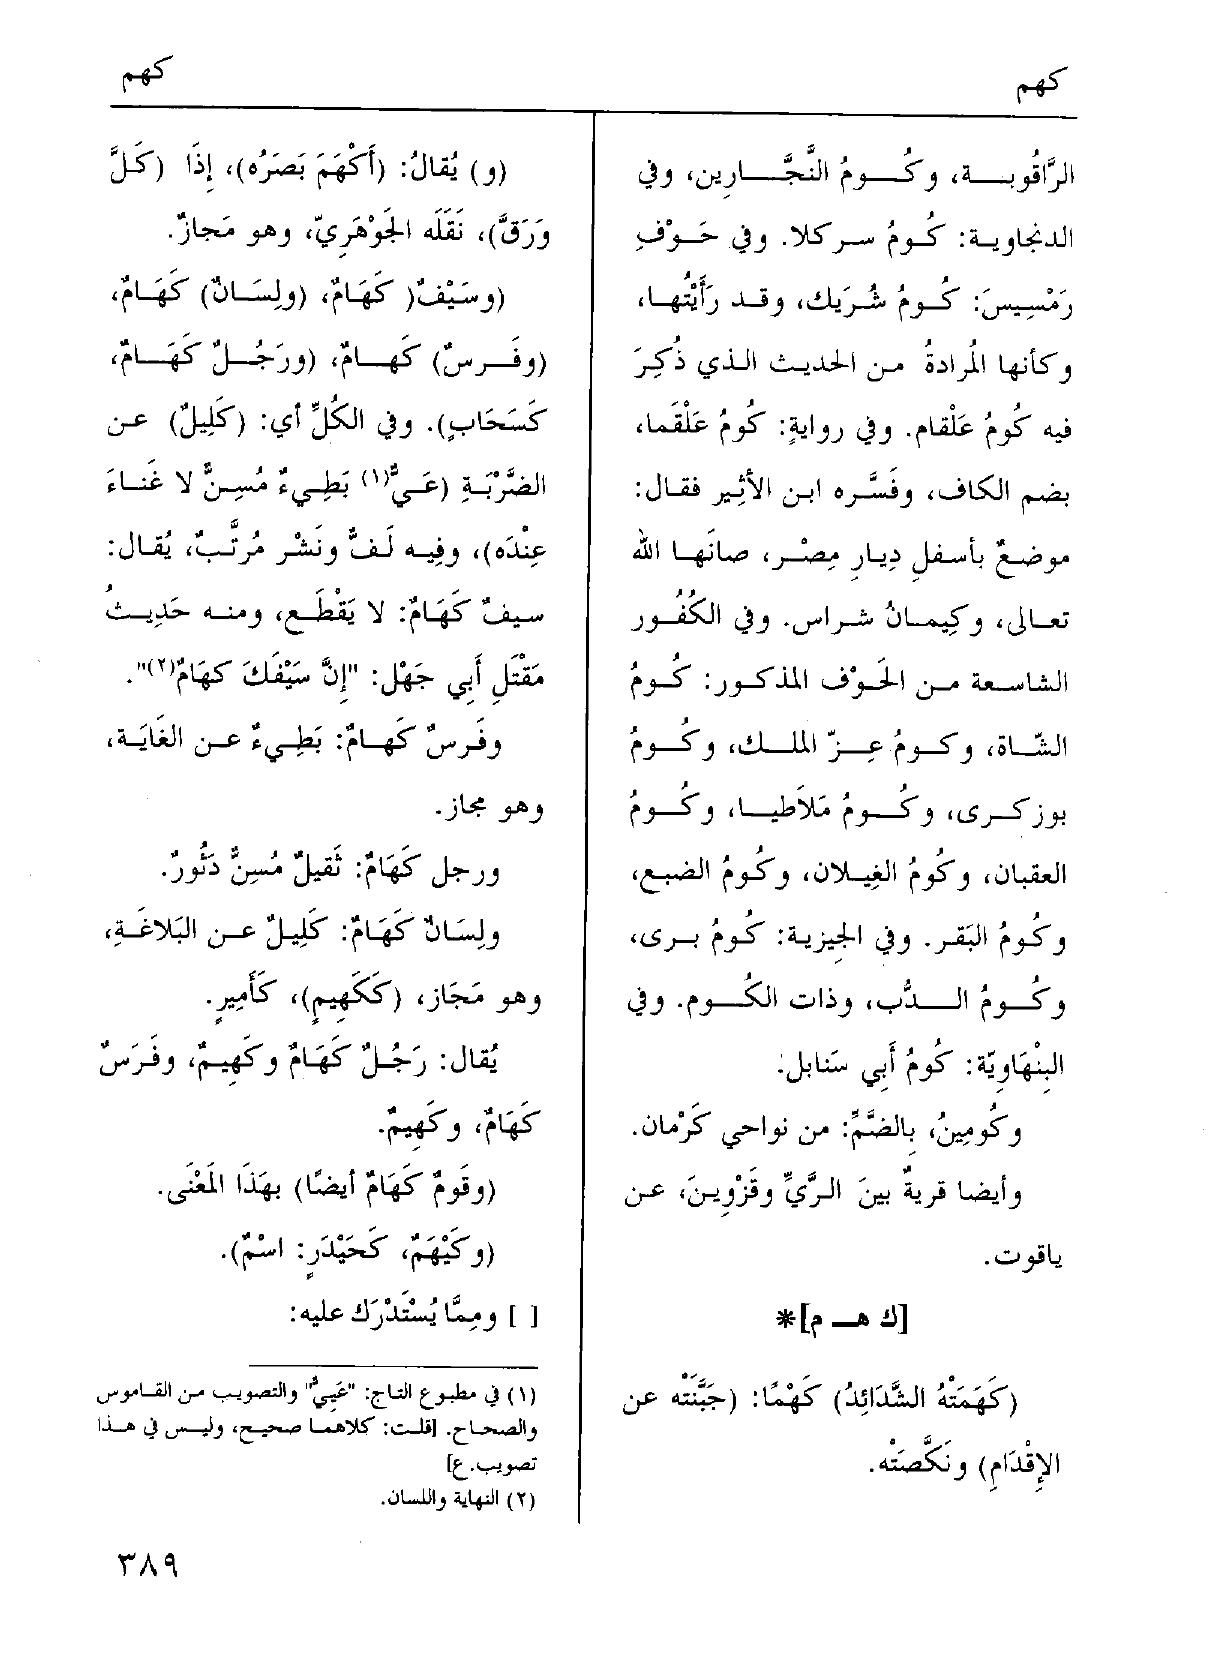 كهم
كهم
الرَّاقُوبــة، وكُــومُ النَّجَّــارِين، وفي
الدنجاوية: كُومُ سركلا. وفي حَوْفِ
رَمْسِيسَ: كُومُ شُرَيك، وقد رَأَيْتُها،
وكأنها المُرادةُ من الحديث الذي ذُكِرَ
فيه كُومُ عَلْقام. وفي روايةٍ: كُومُ عَلْقَما،
بضم الكاف، وفَسَّره ابن الأثير فقال:
موضعٌ بأسفلِ دِيارِ مِصْر، صانَها الله
تعالى، وكِيمانُ شراس. وفي الكُفُور
الشاسعة من الحَوْف المذكور: كُومُ
الشّاة، وكومُ عِزّ الملك، وكُومُ
بوزكرى، وكُومُ مَلاَطيا، وكُومُ
العقبان، وكُومُ الغِيلان، وكُومُ الضبع،
وكُومُ البَقر. وفي الجِيزية: كُومُ برى،
وكُومُ الدُّب، وذات الكُوم. وفي
البِنْهَاوِيّة: كُومُ أَبي سَنابل.
وكُومِينُ، بِالضَّمِّ: من نواحي كَرْمان.
وأيضا قريةٌ بينَ الرَّيِّ وقَزْوِينَ، عن
ياقوت.
[ك هـ م]*
(كَهَمَتْهُ الشَّدَائِدُ) كَهْمًا: (جَبَّنَتْه عن
الإِقْدَامِ) ونَكَّصَتْه.
(و) يُقالُ: (أَكْهَمَ بَصَرُه)، إِذَا (كَلَّ
ورَقَّ)، نَقَلَه الجَوْهَرِيّ، وهو مَجازٌ.
(وسَيْفٌ( كَهَامٌ، (ولِسَانٌ) كَهَامٌ،
(وفَرسٌ) كَهامٌ، (ورَجُلٌ كَهَامٌ،
كَسَحَابٍ). وفي الكُلِّ أي: (كَلِيلٌ) عن
الضَّرْبَةِ (عَيٌّ(١) بَطِيءٌ مُسِنٌّ لا غَناءَ
عِنْدَه)، وفِيه لَفٌّ ونَشْر مُرتَّبٌ، يُقال:
سيفٌ كَهَامٌ: لا يَقْطَع، ومنه حَدِيثُ
مَقْتَلِ أَبِي جَهْل: "إِنَّ سَيْفَكَ كهَامٌ(٢)".
وفَرسٌ كَهامٌ: بَطِيءٌ عن الغَايَة،
وهو مجاز.
ورجل كَهَامٌ: ثَقيلٌ مُسِنٌّ دَثُورٌ.
ولِسَانٌ كَهَامٌ: كَلِيلٌ عن البَلاغَةِ،
وهو مَجَاز، (كَكَهِيمٍ)، كَأَمِيرٍ.
يُقال: رَجُلٌ كَهَامٌ وكَهِيمٌ، وفَرَسٌ
كَهَامٌ، وكَهِيمٌ.
(وقَومٌ كَهَامٌ أيضًا) بهَذَا المَعْنَى.
(وكَيْهَمٌ، كَحَيْدَرٍ: اسْمٌ).
[ ] ومِمَّا يُسْتَدْرَك عليه:
(١) في مطبوع التاج: "عَيِيٌّ" والتصويب من القاموس
والصحاح. [قلت: كلاهما صحيح، وليس في هذا
تصويب. ع]
(٢) النهاية واللسان.
٣٨٩